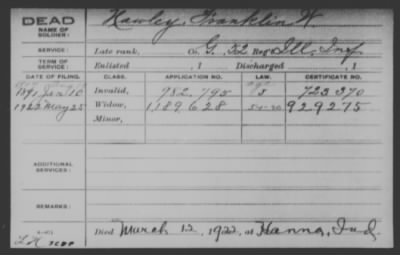 DEAD
NAME OF SOLDIER:
Hawley, Franklin W.
SERVICE:
Late rank, Co. G, 32 Reg't Ill. Inf.
TERM OF SERVICE:
Enlisted , 1 Discharged , 1
DATE OF FILING. CLASS. APPLICATION NO. LAW. CERTIFICATE NO.
Jan 10 Invalid, 782,795 723,370
1922 May 25 Widow, 1,189,628 929275
Minor,
ADDITIONAL SERVICES:
REMARKS:
Died March 12, 1922, at Hanna, Ind.